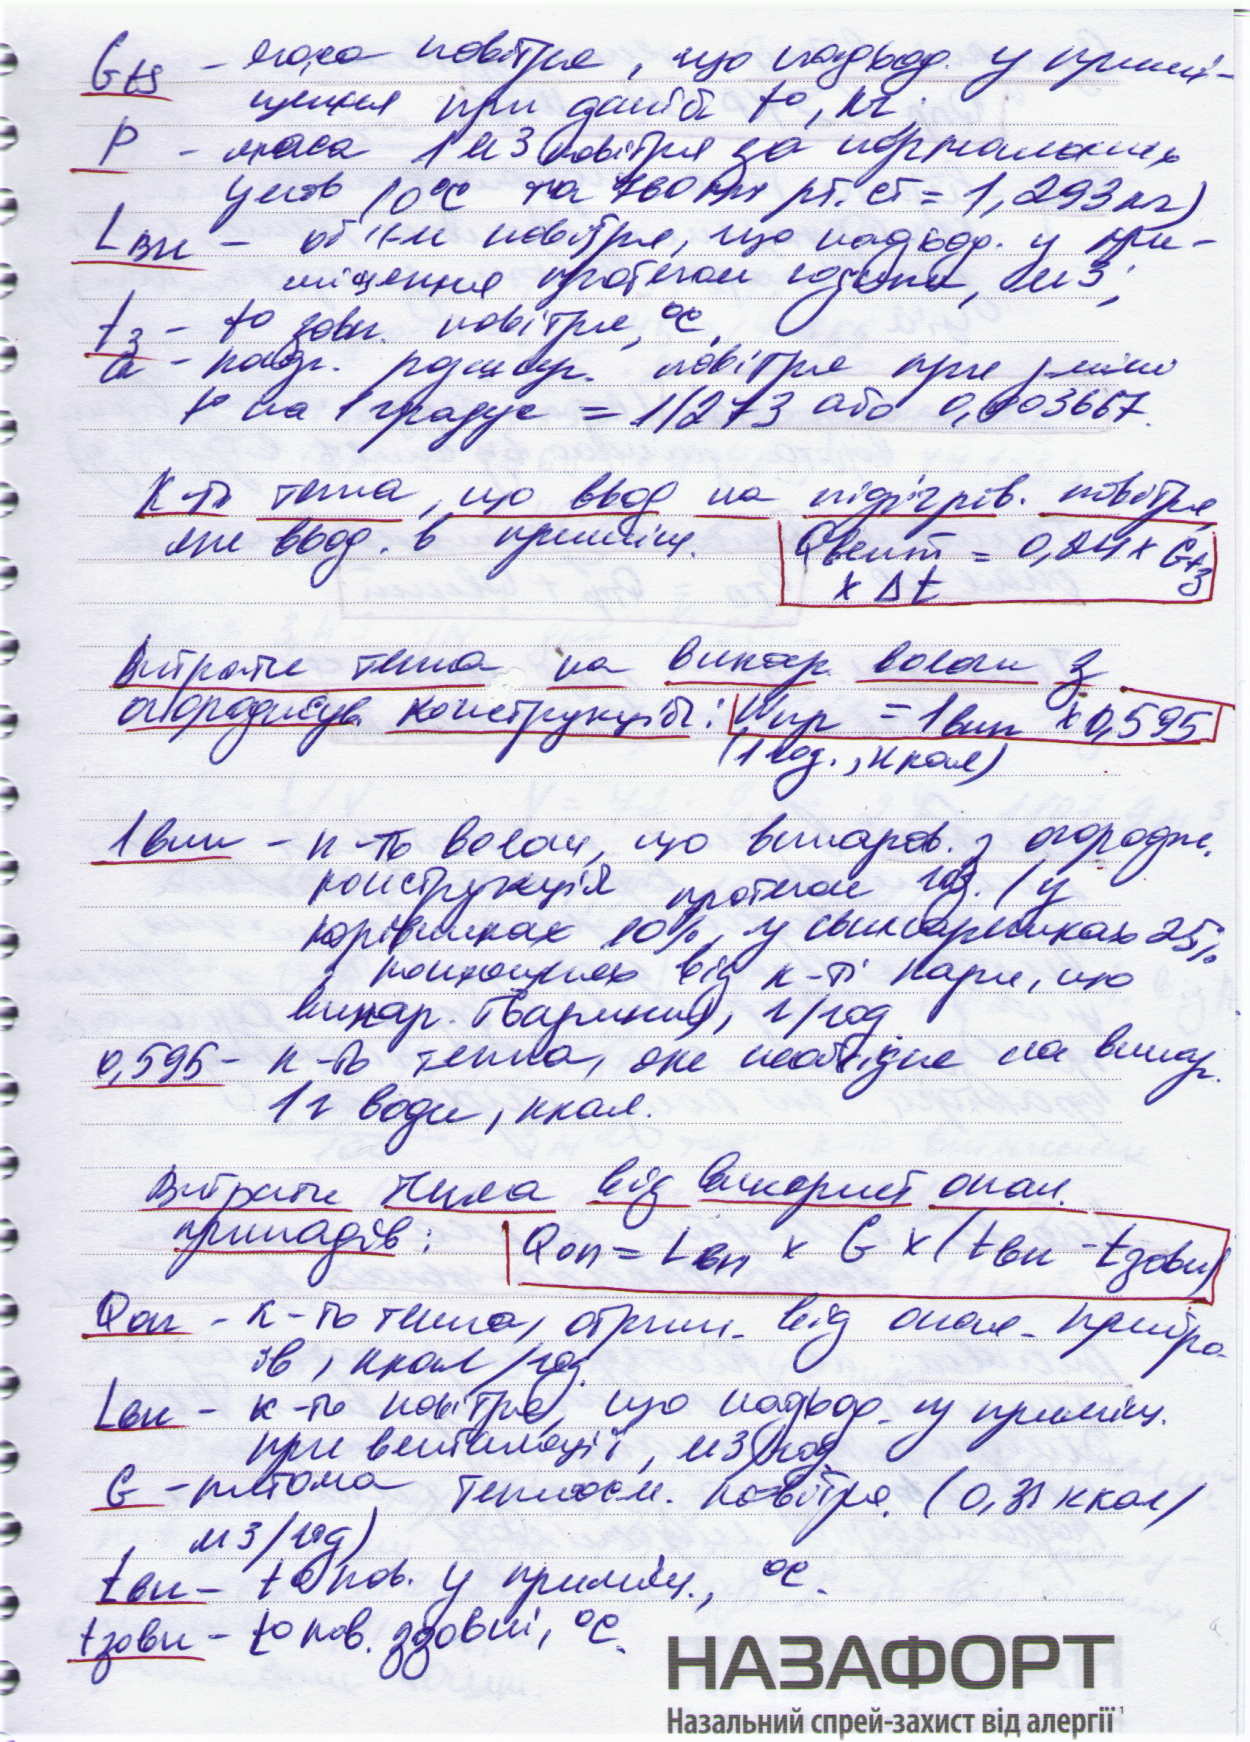 Gt3 - маса повітря, що надход. у примі-
щення при даній t°, кг.
P - маса 1 м3 повітря за нормальних
умов (0°С та 760 мм рт. ст = 1,293 кг)
Lвн - об'єм повітря, що надход. у при-
міщення протягом години, м3;
tз - t° зовн. повітря, °С.
α - коеф. розшир. повітря при зміні
t° на 1 градус = 1/273 або 0,003667.
К-ть тепла, що ввод на підігрів. повітря,
яке ввод. в приміщ. Qвент = 0,24 × Gt3
× Δt
Витрати тепла на випар. вологи з
огороджув. конструкцій: Wпр = 1вип × 0,595
(1 год., ккал)
1вип - к-ть вологи, що випаров. з огородж.
конструкцій протягом год. (у
корівниках 10%, у свинарниках 25%
від к-ті пари, що
випар. тварини), г/год
0,595 - к-ть тепла, яке необхідне на випар.
1 г води, ккал.
Витрати тепла від використ опал.
приладів: Qоп = Lвн × G × (tвн - tзовн)
Qоп - к-ть тепла, отрим. від опал. прибро-
їв, ккал/год.
Lвн - к-ть повітря, що надход. у приміщ.
при вентиляції, м3/год
G - питома теплоєм. повітря (0,31 ккал/
м3/год)
tвн - t° пов. у приміщ., °С.
tзовн - t° пов. ззовні, °С.
НАЗАФОРТ
Назальний спрей-захист від алергії¹